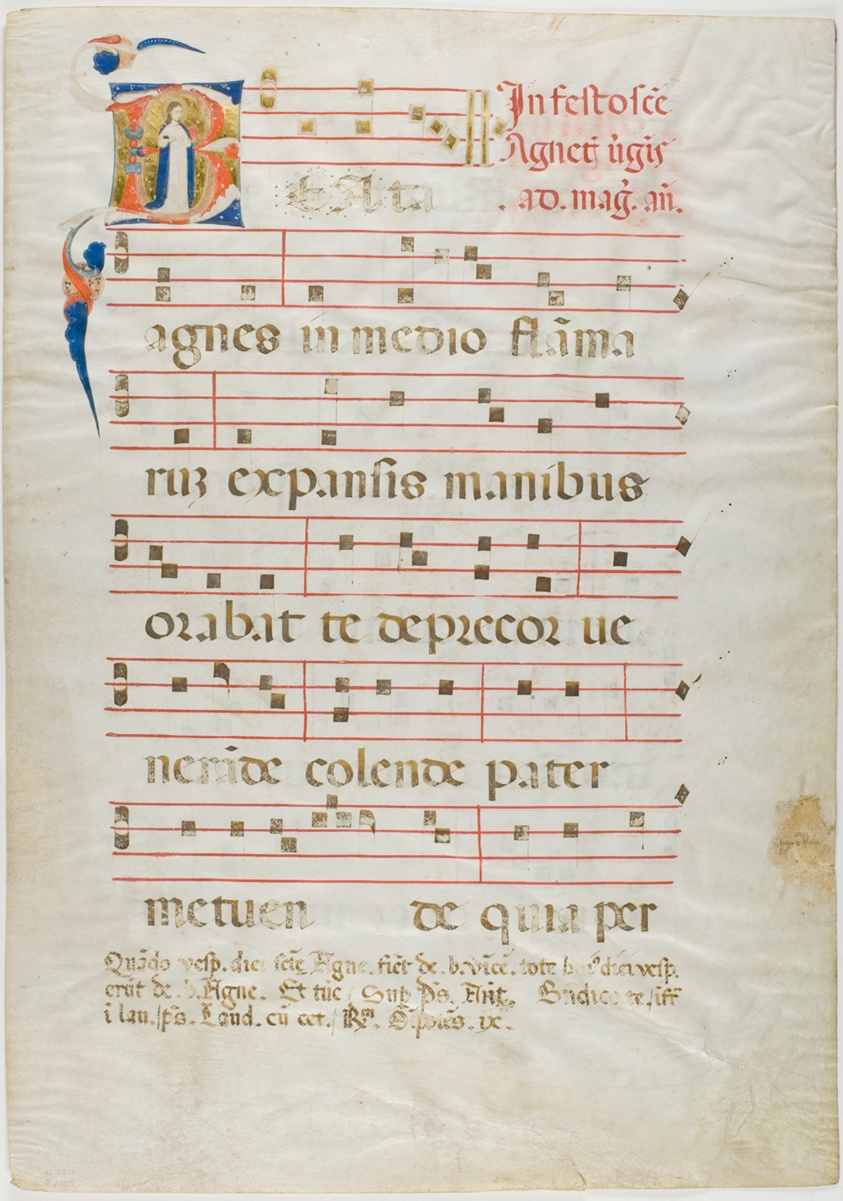 In festo scē
Agnetꝭ ỽ̇gis
BEAta . ad. mag̃. añ.
agnes in medio flāma
ruꝫ expansis manibus
orabat te deprecor ue
nerāde colende pater
metuen de quia per
Quādo vesp. diei scē Agne. fiēt de .b. vīcē. tote diei vesp.
erūt de .b. Agne. Et tūc / Sub p̄s. Ant̄. Bn̄dico te. / iſt
ī lau. / p̄s. Laud. cū cet. / ix.